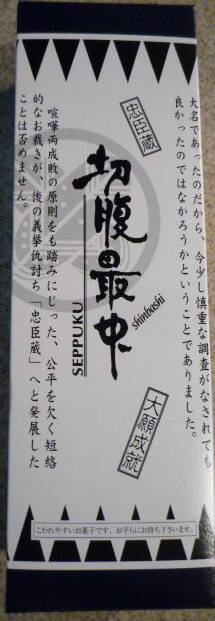 大名であったのだから、今少し慎重な調査がなされても
良かったのではなかろうかということでありました。
忠臣蔵
切腹最中
shinbashi
SEPPUKU
大願成就
喧嘩両成敗の原則をも踏みにじった、公平を欠く短絡
的なお裁きが、後の義挙仇討ち「忠臣蔵」へと発展した
ことは否めません。
こわれやすいお菓子です、お平らにお持ち下さいませ。